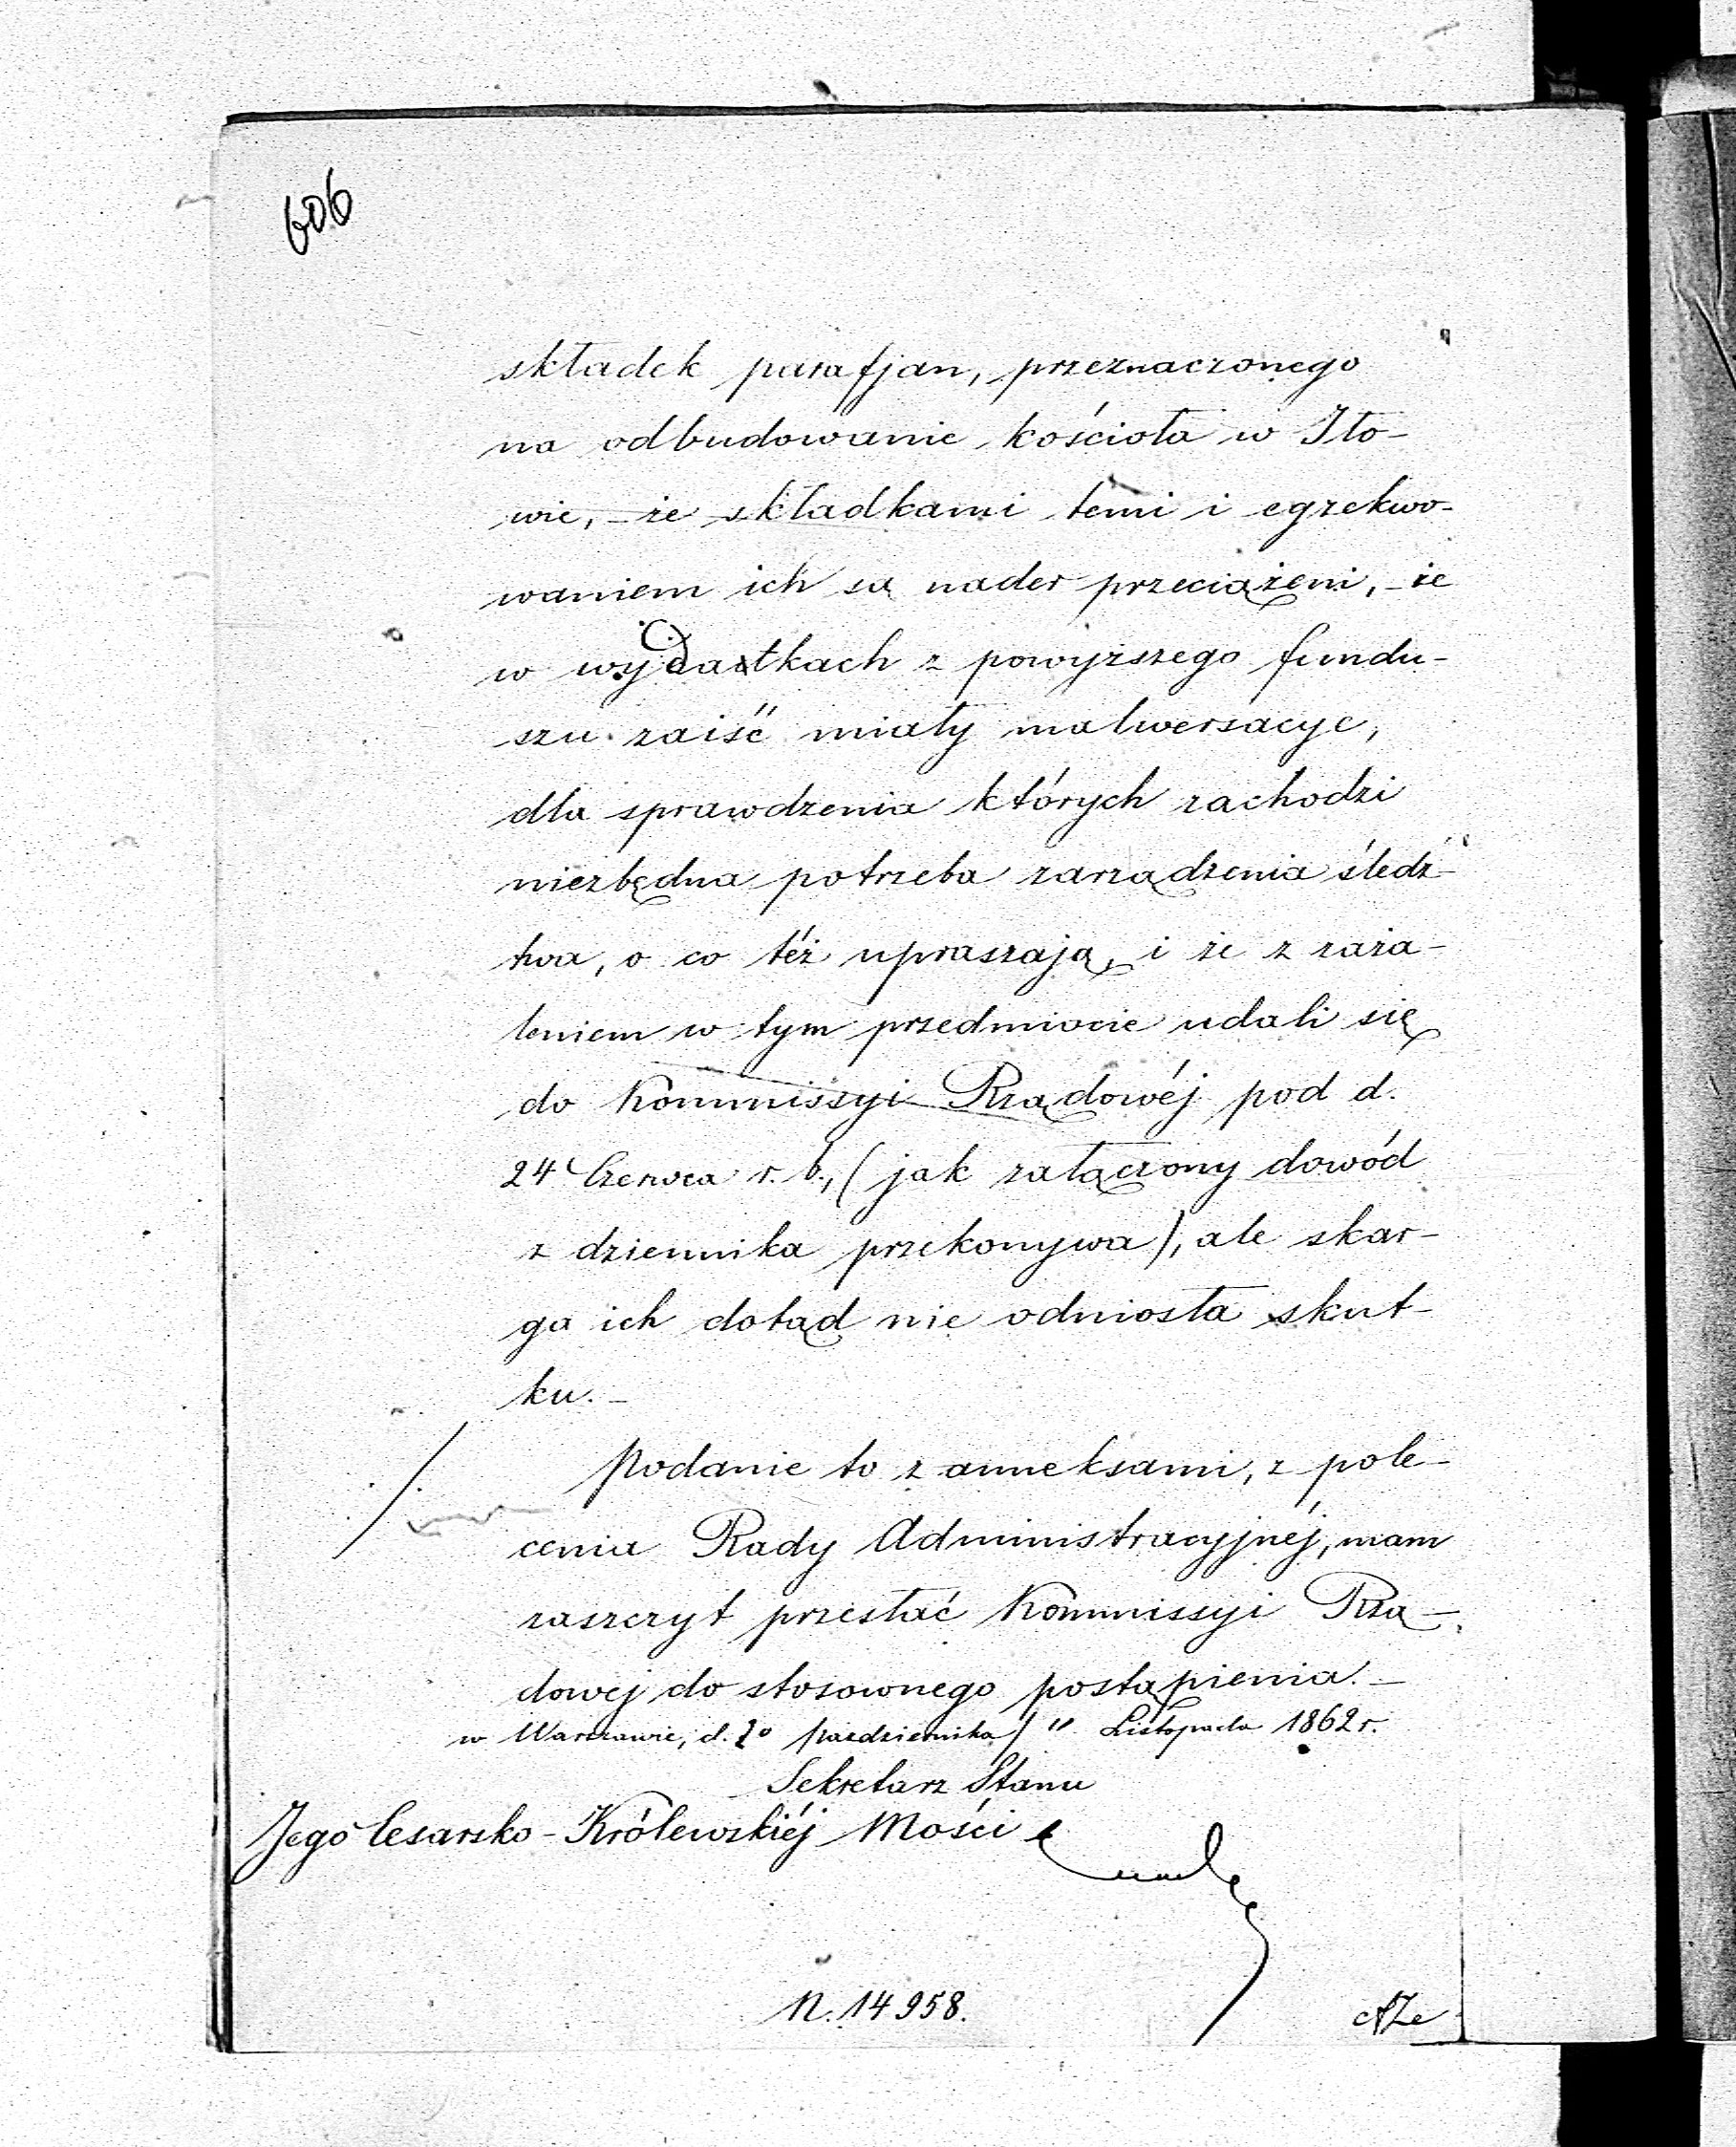 606
składek parafjan, przeznaczonego
na odbudowanie kościoła w Iło-
wie, - że składkami temi i egzekwo-
waniem ich są nader przeciążeni, - że
w wydatkach z powyższego fundu-
szu zaiść miały malwersacye,
dla sprawdzenia których zachodzi
niezbędna potrzeba zarządzenia śledz-
twa, o co też upraszają, i że z zaża-
leniem w tym przedmiocie udali się
do Kommissyi Rządowéj pod d.
24 Czerwca r. b., (jak załączony dowód
z dziennika przekonywa), ale skar-
ga ich dotąd nie odniosła skut-
ku. -
Podanie to z anneksami, z pole-
cenia Rady Administracyjnéj, mam
zaszczyt przesłać Kommissyi Rzą-
dowej do stosownego postąpienia. -
w Warszawie, d. Października / " Listopada 1862 r.
Sekretarz Stanu
Jego Cesarsko-Królewskiéj Mości
N. 14958.